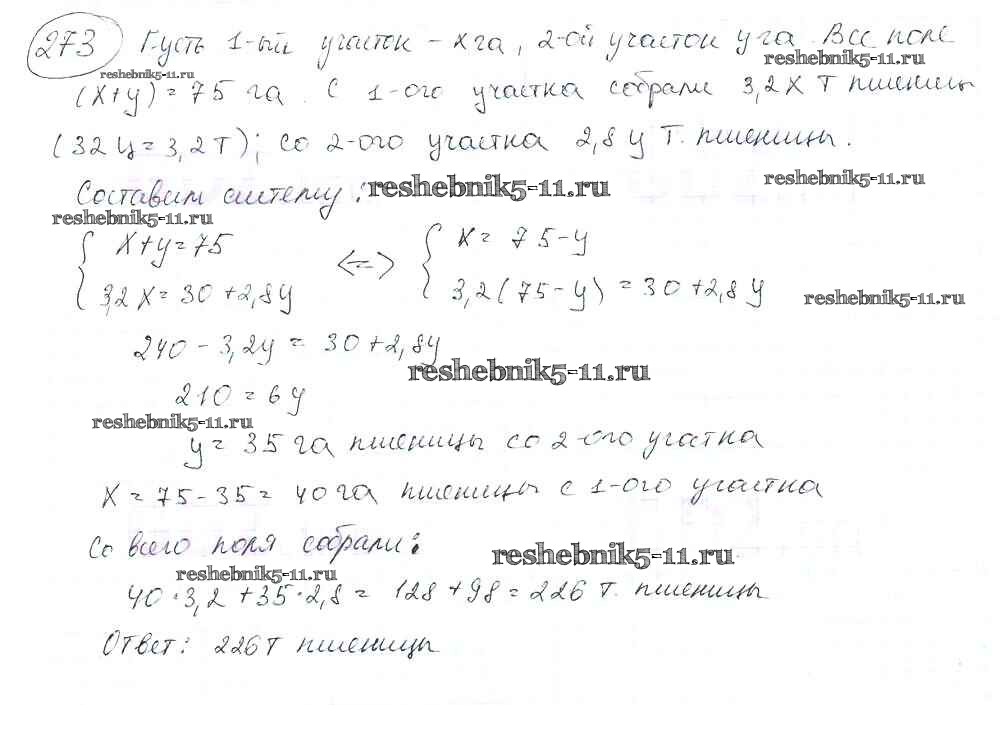 273 Пусть 1-ый участок – x га, 2-ой участок y га. Все поле
reshebnik5-11.ru
reshebnik5-11.ru
(x+y) = 75 га. С 1-ого участка собрали 3,2x т пшеницы
(32 ц = 3,2 т); со 2-ого участка 2,8 y т. пшеницы.
Составим систему:
reshebnik5-11.ru
reshebnik5-11.ru
reshebnik5-11.ru
{ x+y=75 <=> { x = 75-y
3,2 x = 30+2,8y 3,2(75-y) = 30+2,8 y
reshebnik5-11.ru
240 - 3,2y = 30+2,8y
reshebnik5-11.ru
210 = 6y
reshebnik5-11.ru
y = 35 га пшеницы со 2-ого участка
x = 75-35 = 40 га пшеницы с 1-ого участка
Со всего поля собрали:
reshebnik5-11.ru
reshebnik5-11.ru
40·3,2+35·2,8 = 128+98 = 226 т. пшеницы
Ответ: 226 т пшеницы